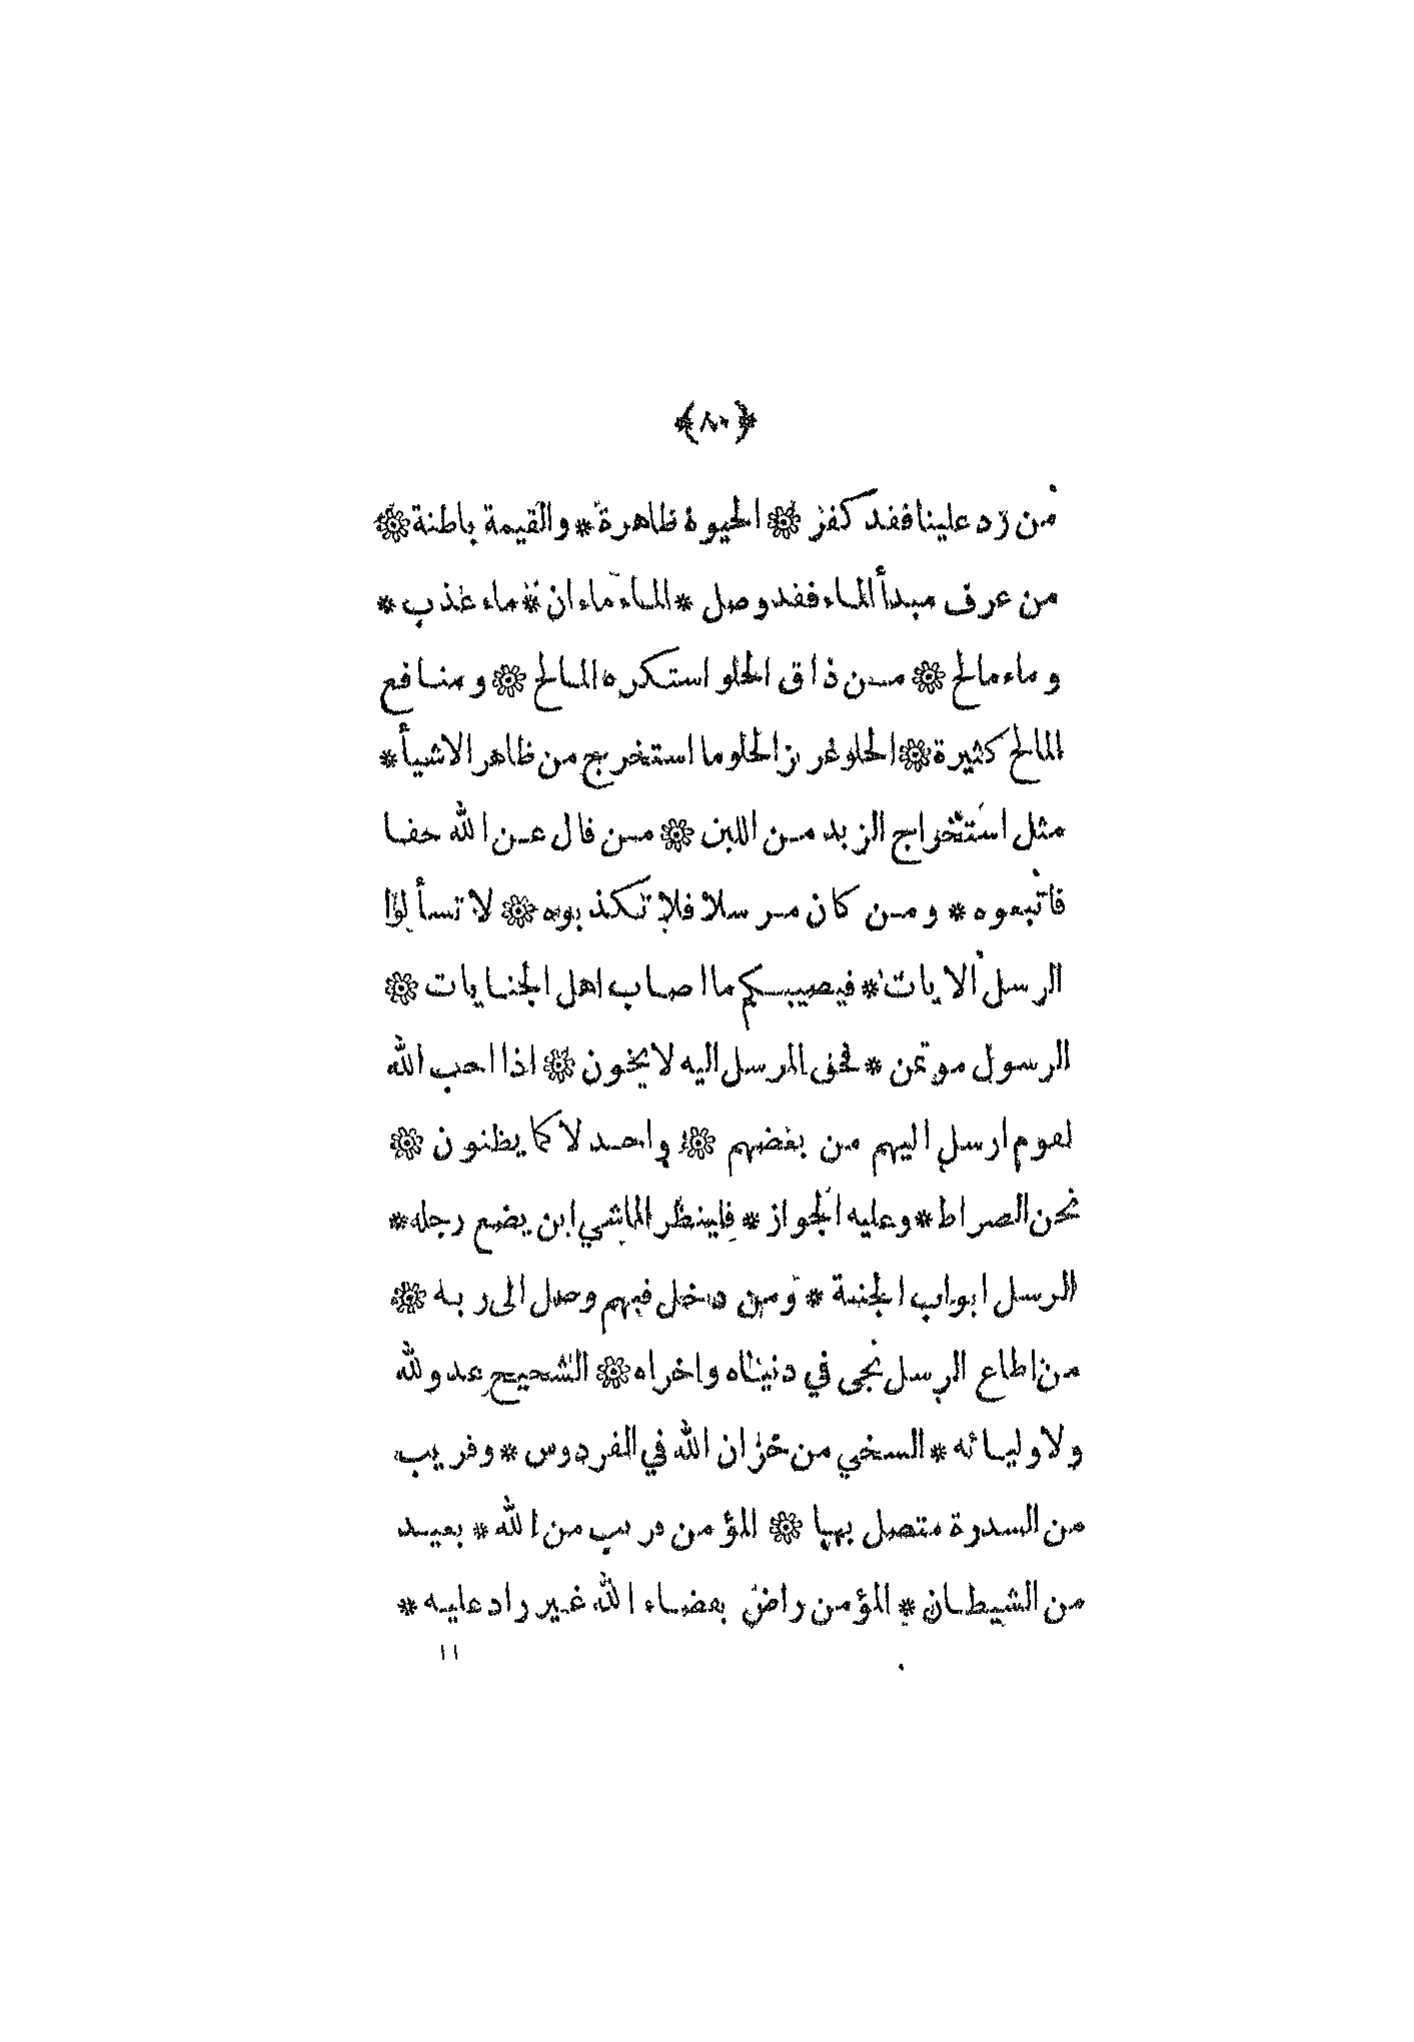 ﴿٨٠﴾
من رد علينا فقد كفر ❁ الحيوة ظاهرة * والقيمة باطنة ❁
من عرف مبدأ الماء فقد وصل * الماء ماءان * ماء عذب *
وماء مالح ❁ من ذاق الحلو استكره المالح ❁ ومنافع
المالح كثيرة ❁ الحلو عزيز الحلو ما استخرج من ظاهر الاشيأ *
مثل استخراج الزبد من اللبن ❁ من قال عن الله حقا
فاتبعوه * ومن كان مرسلا فلا تكذبوه ❁ لا تسألوا
الرسل الايات * فيصيبكم ما اصاب اهل الجنايات ❁
الرسول موتمن * فحق المرسل اليه لا يخون ❁ اذا احب الله
لقوم ارسل اليهم من بعضهم ❁ واحد لا كما يظنون ❁
نحن الصراط * وعليه الجواز * فلينظر الماشي اين يضع رجله *
الرسل ابواب الجنة * ومن دخل فيهم وصل الى ربه ❁
من اطاع الرسل نجى في دنياه واخراه ❁ الشحيح عدو لله
ولاوليائه * السخي من خزان الله في الفردوس * وقريب
من السدرة متصل بها ❁ المؤمن قريب من الله * بعيد
من الشيطان * المؤمن راض بقضاء الله غير راد عليه *
١١